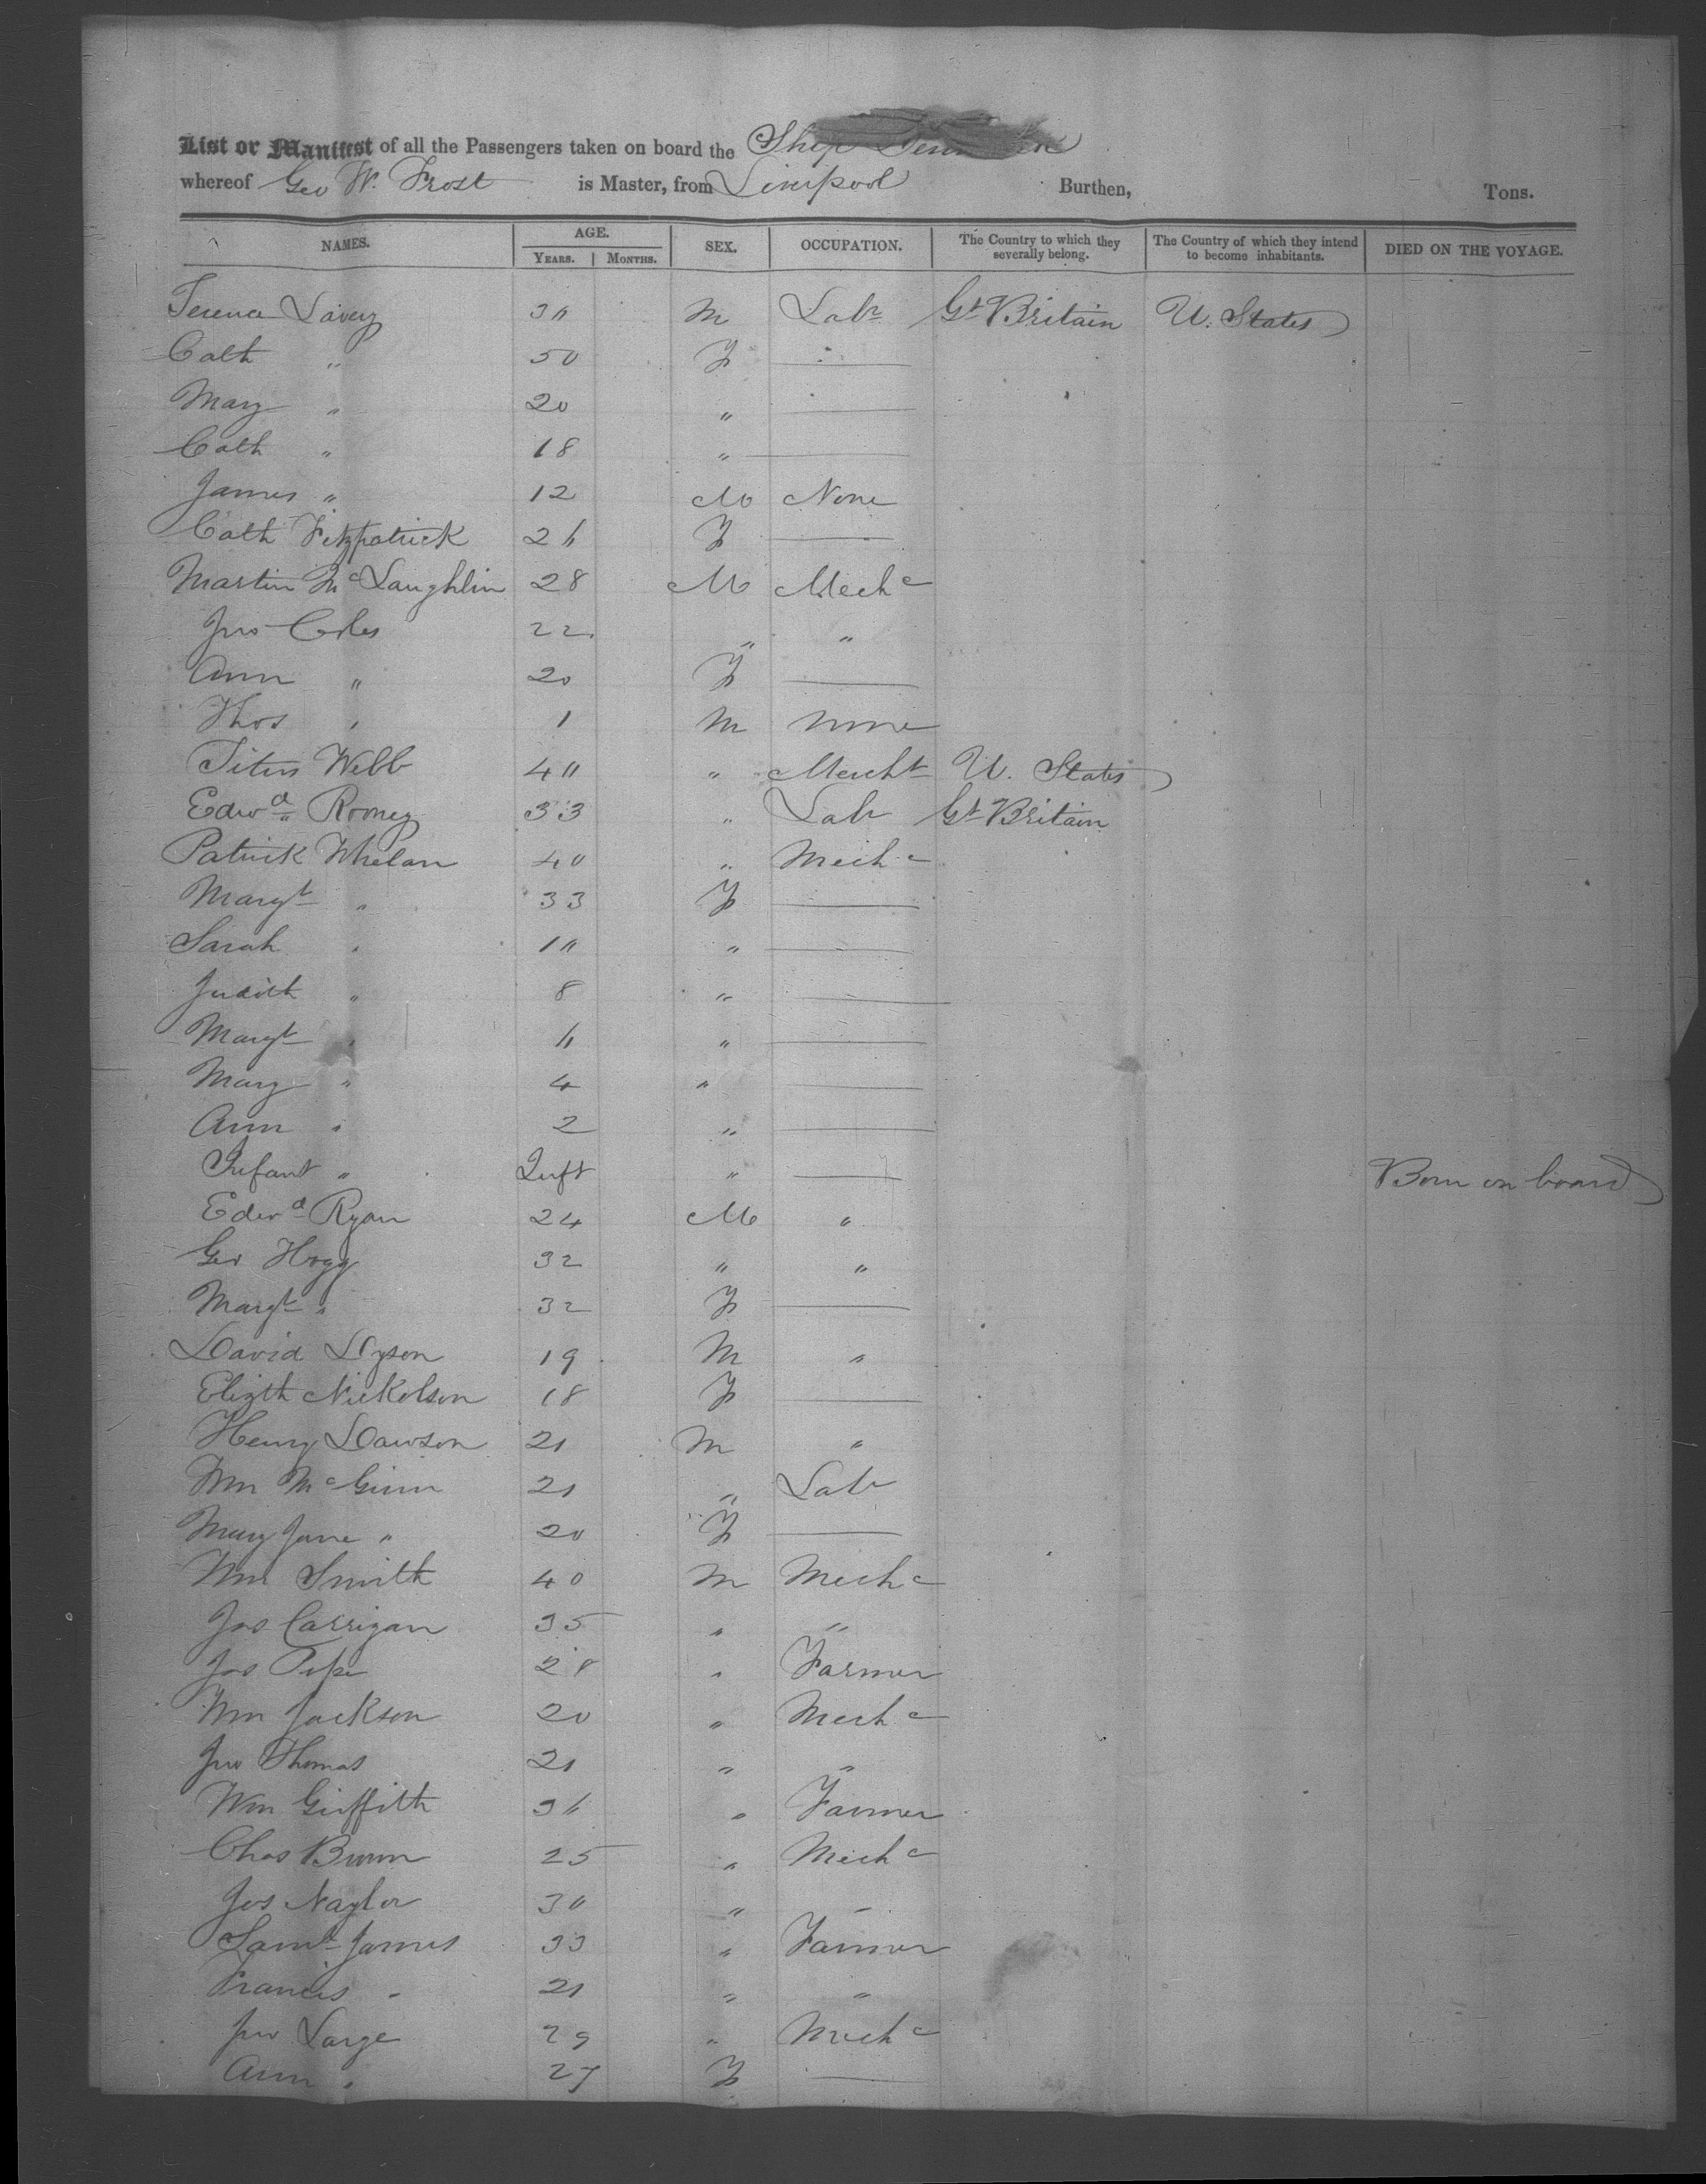 List or Manifest of all the Passengers taken on board the Ship
whereof Geo W. Frost is Master, from Liverpool Burthen, Tons.
NAMES. AGE. SEX. OCCUPATION. The Country to which they severally belong. The Country of which they intend to become inhabitants. DIED ON THE VOYAGE.
YEARS. MONTHS.
Terence Lavery M Labr Gt Britain U. States
Cath " 50 F —
Mary " 20 " —
Cath " 18 " —
James " 12 M None
Cath Fitzpatrick 26 F —
Martin McLaughlin 28 M Mechc
Jno Coles 22 " "
Ann " 20 F —
Thos " 1 M None
Titus Webb " Mercht U. States
Edwd Rooney 33 " Labr Gt Britain
Patrick Whelan 40 " Mechc
Margt " 33 F —
Sarah " " —
Judith " 8 " —
Margt " 6 " —
Mary " 4 " —
Ann " 2 " —
Infant " Inft " — Born on board
Edwd Ryan 24 M "
Geo Hogg 32 " "
Margt " 32 F —
David Dyson 19 M "
Elizth Nickolson 18 F —
Henry Dawson 21 M "
Wm McGinn 21 " Labr
Mary Jane " 20 F —
Wm Smith 40 M Mechc
Jas Carrigan 35 " "
Jos Pipe 28 " Farmer
Wm Jackson 20 " Mechc
Jno Thomas 21 " "
Wm Griffith 36 " Farmer
Chas Bunn 25 " Mechc
Jos Naylor " "
Saml James 33 " Farmer
Francis " 21 " "
Jno Large 29 " Mechc
Ann " 27 F —